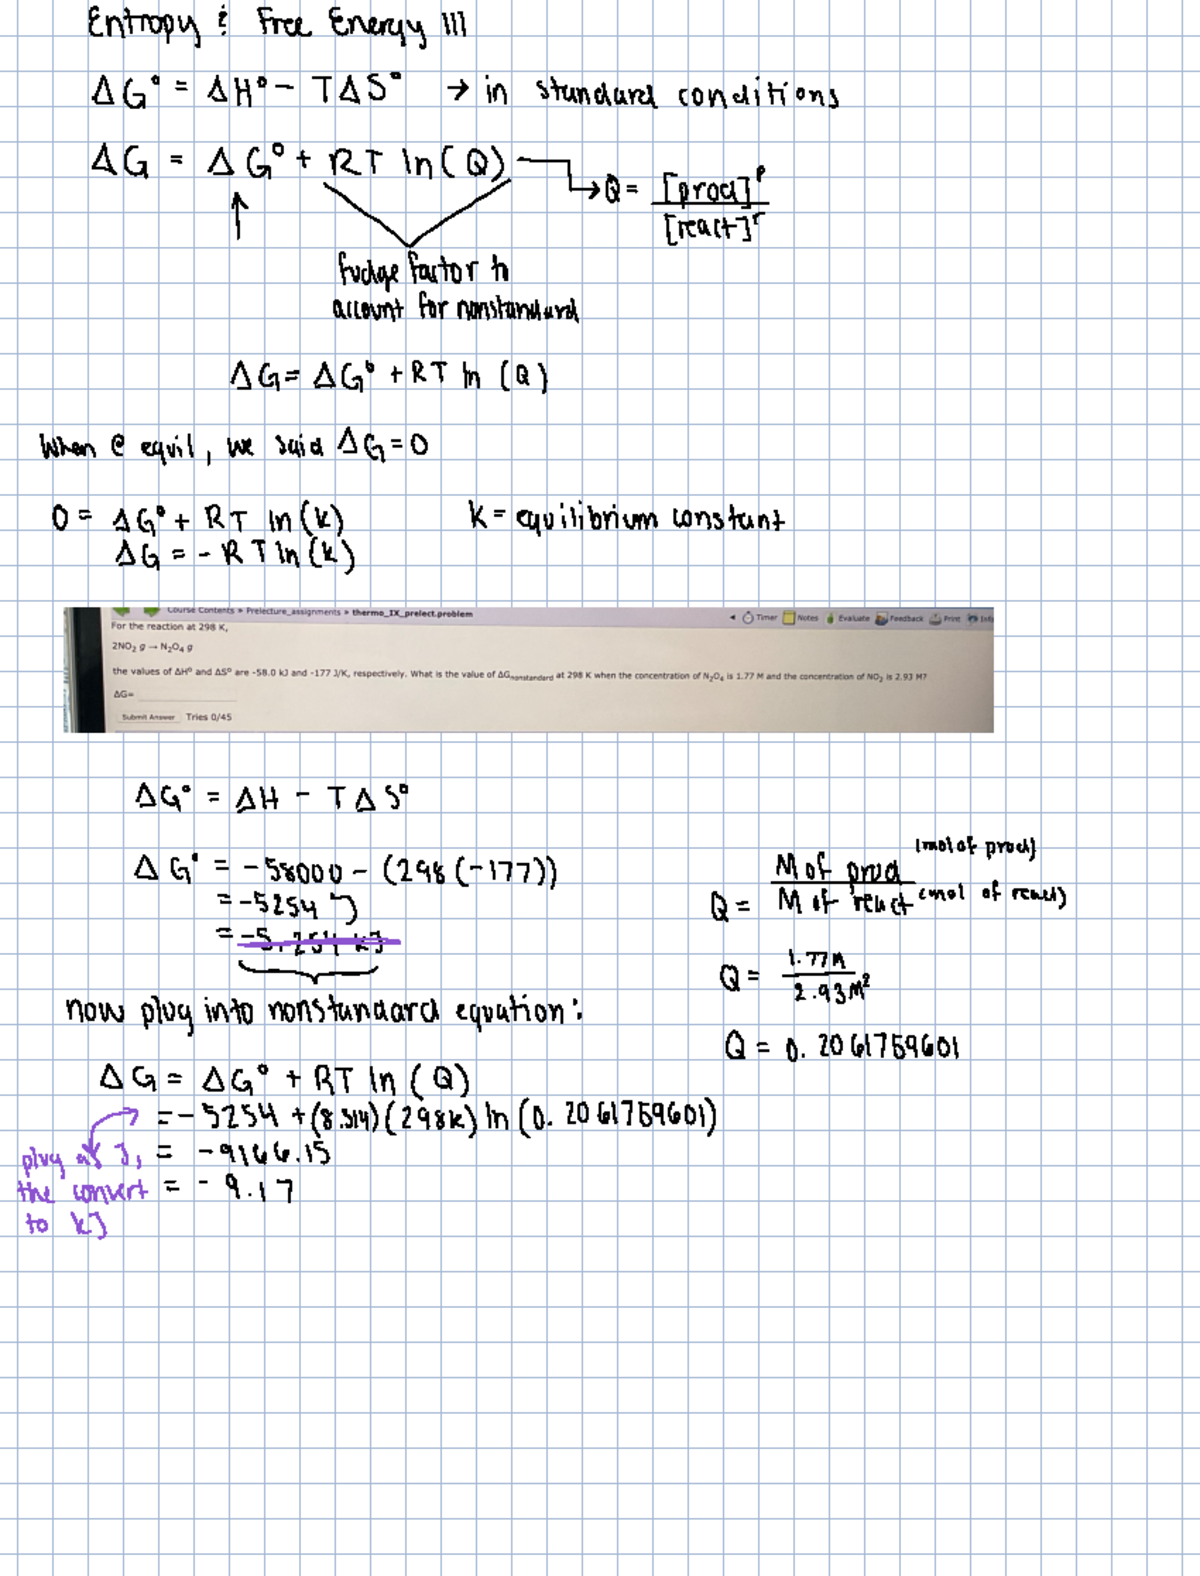 Entropy & Free Energy III
ΔG° = ΔH° - TΔS° → in standard conditions
ΔG = ΔG° + RT ln(Q) → Q = [prod]^p / [react]^r
↑
fudge factor to
account for nonstandard
ΔG = ΔG° + RT ln (Q)
When @ equil, we said ΔG = 0
0 = ΔG° + RT ln(k) k = equilibrium constant
ΔG = - RT ln(k)
Course Contents » Prelecture_assignments » thermo_IX_prelect.problem
Timer Notes Evaluate Feedback Print Info
For the reaction at 298 K,
2NO₂ g → N₂O₄ g
the values of ΔH° and ΔS° are -58.0 kJ and -177 J/K, respectively. What is the value of ΔG_nonstandard at 298 K when the concentration of N₂O₄ is 1.77 M and the concentration of NO₂ is 2.93 M?
ΔG=
Submit Answer Tries 0/45
ΔG° = ΔH - TΔS°
ΔG° = -58000 - (298(-177))
= -5254 J
= -5.254 kJ
Q = M of prod (mol of prod) / M of react (mol of react)
Q = 1.77M / 2.93M²
Q = 0.2061759601
now plug into nonstandard equation:
ΔG = ΔG° + RT ln (Q)
= -5254 + (8.314)(298K) ln (0.2061759601)
= -9166.15
= -9.17
plug as J,
the convert
to kJ